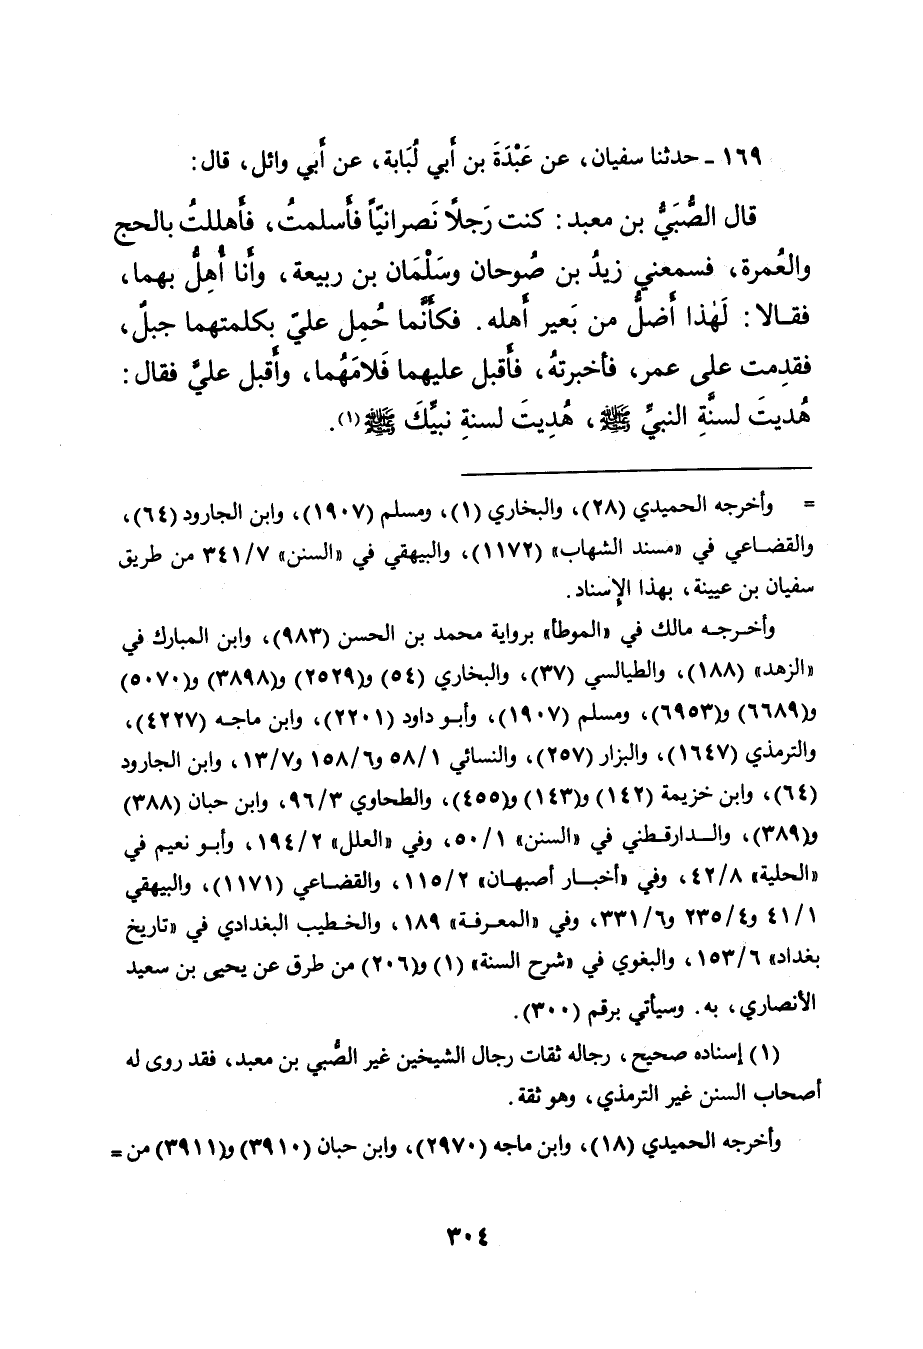 ١٦٩ ـ حدثنا سفيان، عن عَبْدَةَ بن أَبي لُبَابة، عن أَبي وائل، قال:
قال الصُّبَيُّ بن معبد: كنت رَجلًا نَصرانيّاً فأَسلمتُ، فأَهللتُ بالحج
والعُمرة، فسمعني زيدُ بن صُوحان وسَلْمَان بن ربيعة، وأَنا أُهِلُّ بهما،
فقـالا: لَهٰذا أَضلُّ من بَعير أَهله. فكأَنَّما حُمِل عليّ بكلمتهما جبلٌ،
فقدِمت على عمر، فأخبرتهُ، فأَقبل عليهما فَلامَهُما، وأَقبل عليَّ فقال:
هُديتَ لسنَّةِ النبيِّ ﷺ، هُدِيتَ لسنةِ نبيِّكَ ﷺ(١).
= وأخرجه الحميدي (٢٨)، والبخاري (١)، ومسلم (١٩٠٧)، وابن الجارود (٦٤)،
والقضـاعي في «مسند الشهاب» (١١٧٢)، والبيهقي في «السنن» ٣٤١/٧ من طريق
سفيان بن عيينة، بهذا الإسناد.
وأخـرجـه مالك في «الموطأ» برواية محمد بن الحسن (٩٨٣)، وابن المبارك في
«الزهد» (١٨٨)، والطيالسي (٣٧)، والبخاري (٥٤) و(٢٥٢٩) و(٣٨٩٨) و(٥٠٧٠)
و(٦٦٨٩) و(٦٩٥٣)، ومسلم (١٩٠٧)، وأبـو داود (٢٢٠١)، وابن ماجـه (٤٢٢٧)،
والترمذي (١٦٤٧)، والبزار (٢٥٧)، والنسائي ٥٨/١ و١٥٨/٦ و١٣/٧، وابن الجارود
(٦٤)، وابن خزيمة (١٤٢) و(١٤٣) و(٤٥٥)، والطحاوي ٩٦/٣، وابن حبان (٣٨٨)
و(٣٨٩)، والـدارقـطني في «السنن» ٥٠/١، وفي «العلل» ١٩٤/٢، وأبـو نعيم في
«الحلية» ٤٢/٨، وفي «أخبـــار أصبهـان» ١١٥/٢، والقضـاعي (١١٧١)، والبيهقي
٤١/١ و٢٣٥/٤ و٣٣١/٦، وفي «المعـرفـة» ١٨٩، والخـطيب البغدادي في «تاريخ
بغداد» ١٥٣/٦، والبغوي في «شرح السنة» (١) و(٢٠٦) من طرق عن يحيى بن سعيد
الأنصاري، به. وسيأتي برقم (٣٠٠).
(١) إسناده صحيح، رجاله ثقات رجال الشيخين غير الصُّبي بن معبد، فقد روى له
أصحاب السنن غير الترمذي، وهو ثقة.
وأخرجه الحميدي (١٨)، وابن ماجه (٢٩٧٠)، وابن حبان (٣٩١٠) و(٣٩١١) من =
٣٠٤